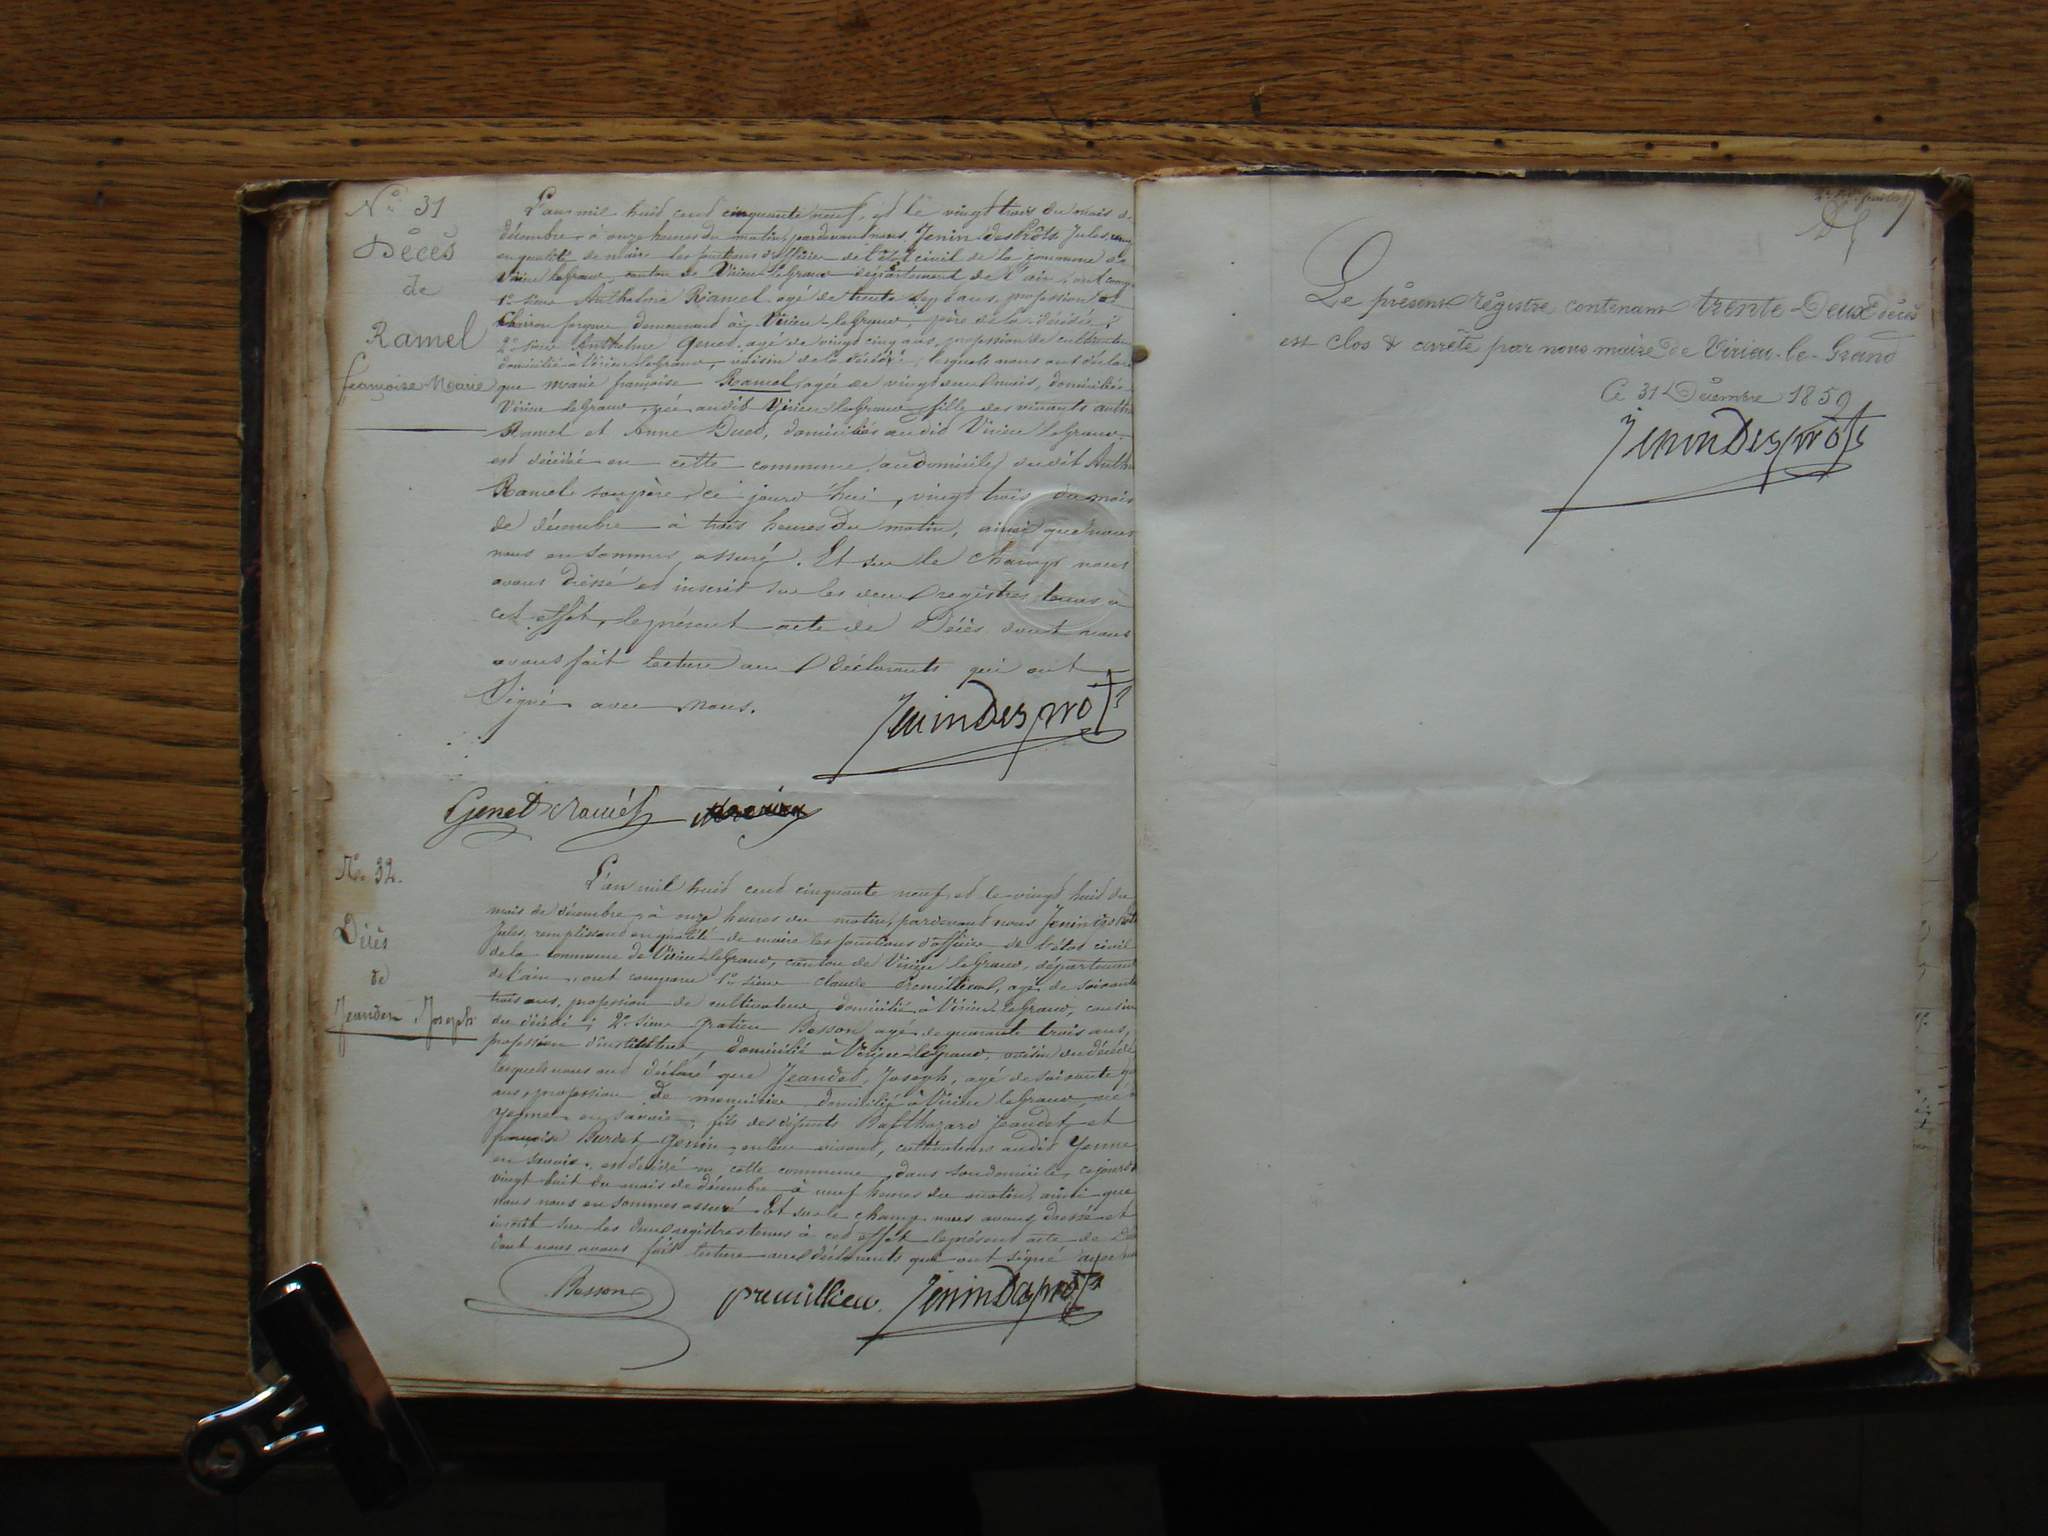 N° 31
Décès
de
Ramel
françoise Marie
L'an mil huit cent cinquante neuf, et le vingt trois du mois de
décembre, à onze heures du matin, pardevant nous, Jenin des Prôts Jules,
en qualité de maire les fonctions d'officier de l'état civil de la commune de
Virieu le Grand, canton de Virieu-le Grand département de l'ain, ont comp
1° sieur Anthelme Ramel agé de trente sept ans, profession de
forgeur demeurant à Virieu-le Grand, père de la décédée;
2° sieur Anthelme Genet, agé de vingt cinq ans, profession de cultivateur
domicilié à Virieu le Grand, voisin de la décédée, lesquels nous ont déclaré
que Marie françoise Ramel, agée de vingt deux mois, domiciliée
Virieu le Grand, née audit Virieu-le Grand, fille des vivants anth
Ramel et Anne Duet, domiciliés audit Virieu le Grand,
est décédée en cette commune, au domicile dudit Anth
Ramel son père, ce jourd'hui, vingt trois du mois
de décembre à trois heures du matin, ainsi que nous
nous en sommes assuré. Et sur le champ nous
avons dressé et inscrit sur les deux registres tenus à
cet effet, le présent acte de Décès dont nous
avons fait lecture aux déclarants qui ont
Signé avec nous.
JeninDesprots
Genet Ramel
N° 32.
Décès
de
Jeandet Joseph
L'an mil huit cent cinquante neuf, et le vingt huit du
mois de décembre, à onze heures du matin, pardevant nous Jenin des Prôts
Jules, remplissant en qualité de maire les fonctions d'officier de l'état civil
de la commune de Virieu-le Grand, canton de Virieu le Grand, département
de l'ain, ont comparu 1° sieur claude Premillieu, agé de soixante
trois ans, profession de cultivateur domicilié à Virieu le Grand, cousin
du décédé; 2° sieur gratien Bosson, agé de quarante trois ans,
profession d'instituteur, domicilié à Virieu-le Grand, voisin du décédé
lesquels nous ont déclaré que Jeandet, Joseph, agé de soixante
ans, profession de menuisier domicilié à Virieu le Grand, né à
yenne en savoie, fils des défunts Balthazard Jeandet et
françoise Burdet Genin, en leur vivant, cultivateurs audit Yenne
en savoie, est décédé en cette commune, dans son domicile, cejourd
vingt huit du mois de décembre à neuf heures du matin, ainsi que
nous nous en sommes assuré. Et sur le champ nous avons dressé et
inscrit sur les deux registres tenus à cet effet le présent acte de Décès
dont nous avons fait lecture aux déclarants qui ont signé avec nous
Bosson premillieu JeninDesprots
Le présent régistre contenant trente-Deux décès
est clos & arrêté par nous maire de Virieu-le-Grand
Ce 31 Décembre 1859
JeninDesprots